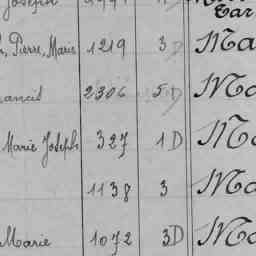 Joseph
Tar
Pierre, Marie 1219 3 D Ma
ancis 2306 5 D Ma
Marie Joseph 327 1 D Ma
1138 3 Ma
Marie 1072 3 D Ma